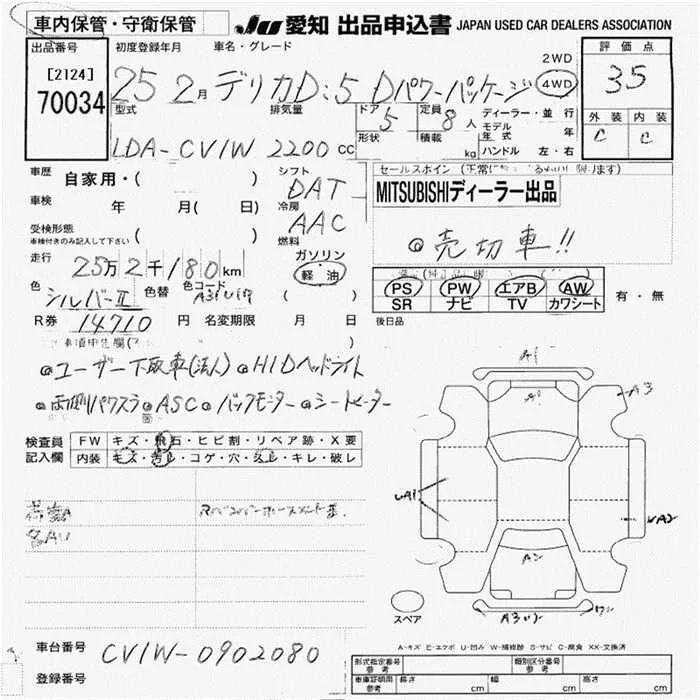 車内保管・守衛保管
JU 愛知 出品申込書 JAPAN USED CAR DEALERS ASSOCIATION
出品番号 初度登録年月 車名・グレード 評価点
[2124]
70034
25 2月 デリカD:5 Dパワーパッケージ 2WD 4WD
35
型式 排気量 ドア 定員 ディーラー・並行
5 8人 モデル年式 年
外装 内装
C C
LDA-CV1W 2200 CC 形状 積載 kg ハンドル 左・右
車歴 自家用・( ) シフト
DAT
車検 年 月( 日) 冷房
AAC
受検形態 ( )
車検付きのみ記入して下さい
燃料
MITSUBISHIディーラー出品
◎売切車!!
走行 25万2千180km ガソリン
軽・油
色 シルバーII 色替 色コード ( )
R券 14710 円 名変期限 月 日
PS PW エアB AW
SR ナビ TV カワシート
有・無
後日品
◎ユーザー下取車(法人) ◎HIDヘッドライト
◎両側パワスラ ◎ASC ◎バックモニター ◎シートヒーター
検査員 FW キズ・飛石・ヒビ割・リペア跡・X要
記入欄 内装 キズ・汚レ・コゲ・穴・スレ・キレ・破レ
A1
A1
A3
UA1
A2
スペア
車台番号 CV1W-0902080
登録番号
A-キズ E-エクボ U-凹み W-補修跡 S-サビ C-腐食 XX-交換済
形式指定番号 参考 類別区分番号 参考
車庫証明用 参考 長さ cm 幅 cm 高さ cm